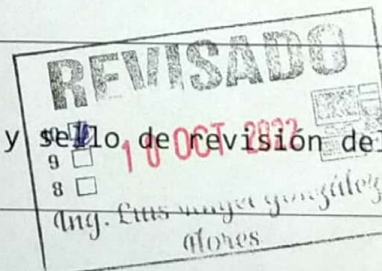 REVISADO
10
y sello de revisión de
9
10 OCT 2022
8
Ing. Luis Angel González
Flores